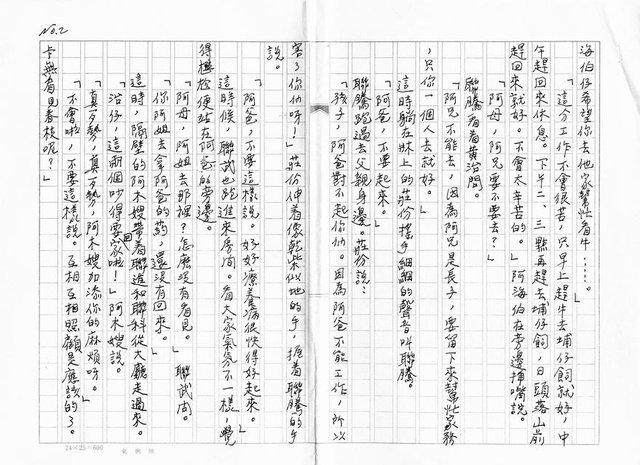 No.2
海伯仔希望你去他家幫忙看牛……
「這分工作不會很苦,只早上趕牛去埔仔飼就好,中
午趕回來休息。下午二、三點再趕去埔仔飼,日頭落山前
趕回來就好。不會太辛苦的。」阿海伯在旁邊插嘴說。
「阿母,阿兄要不要去?」
聯騰看着黃治問。
「阿兄不能去,因為阿兄是長子,要留下來幫忙家務
,只你一個人去就好。」
這時躺在床上的莊份搖手細細的聲音叫聯騰。
「阿爸,不要起來。」
聯騰跑過去父親身邊。莊份說:
「孩子,阿爸對不起你們。因為阿爸不能工作,所以
害了你們呀!」莊份伸着像乾柴似地的手,握着聯騰的手
說。
「阿爸,不要這樣說。好好療養病很快得好起來。」
這時候,聯武也跑進來房间。看大家氣氛不一樣,覺
得尷尬便站在阿爸的旁邊。
「阿母,阿姐去那裡?怎麼沒有看見。」聯武问。
「你阿姐去拿阿爸的药,還沒有回來。」
這時,隔壁的阿木嫂帶着聯道和聯科從大廳走過來。
「治仔,這兩個吵得要回家啦!」阿木嫂說。
「真歹勢,真歹勢,阿木嫂加添你的麻煩呀。」
「不會啦,不要這樣說。互相互相照顧是應該的了。
卡無看見春枝呢?」
24×25=600